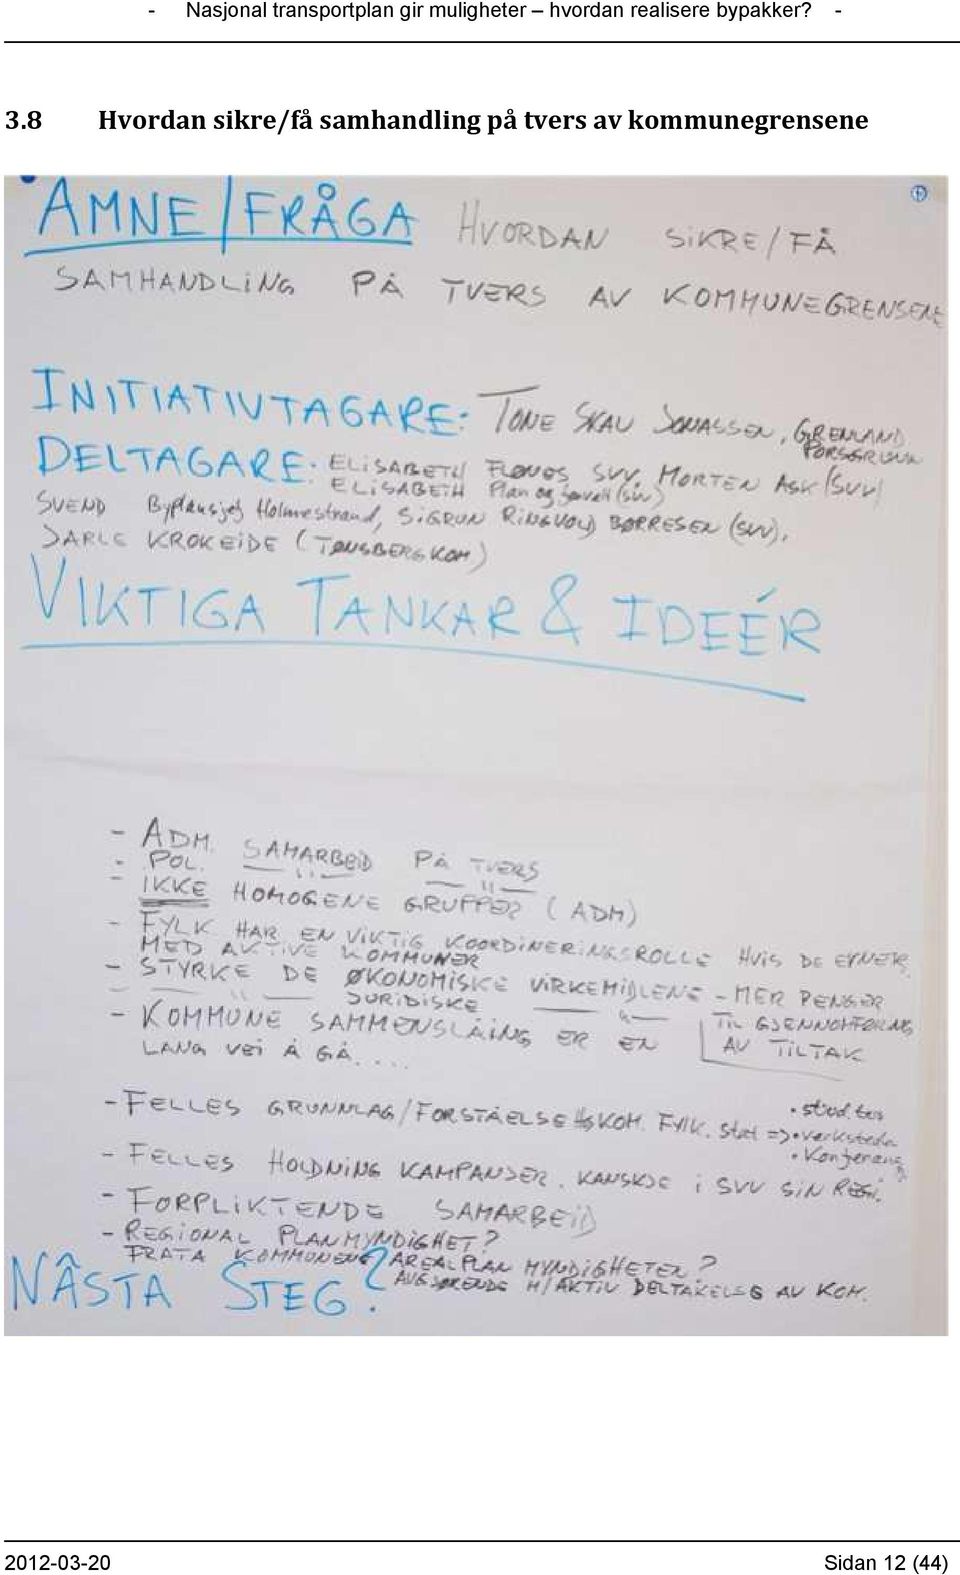 - Nasjonal transportplan gir muligheter – hvordan realisere bypakker? -
3.8 Hvordan sikre/få samhandling på tvers av kommunegrensene
ÄMNE/FRÅGA HVORDAN SIKRE/FÅ
SAMHANDLING PÅ TVERS AV KOMMUNEGRENSENE
INITIATIVTAGARE: TONE SKAU JONASSEN, GRENLAND
PORSGRUNN
DELTAGARE: ELISABETH FLØNES SVV. MORTEN ASK (SVV)
ELISABETH Plan og (SVV)
SVEND Byplansjef Holmestrand, SIGRUN RINGVOLD BØRRESEN (SVV),
JARLE KROKEIDE (TØNSBERG KOM)
VIKTIGA TANKAR & IDEÉR
- ADM. SAMARBEID PÅ TVERS
- POL. — " — — " —
- IKKE HOMOGENE GRUPPER (ADM)
- FYLK HAR EN VIKTIG KOORDINERINGSROLLE HVIS DE EVNER
MED AKTIVE KOMMUNER
- STYRKE DE ØKONOMISKE VIRKEMIDLENE - MER PENGER
- — " — JURIDISKE — " — TIL GJENNOMFØRING
- KOMMUNE SAMMENSLÅING ER EN AV TILTAK
LANG VEI Å GÅ....
- FELLES GRUNNLAG/FORSTÅELSE HOS KOM. FYLK. stat => • verksteder
• Konferanse
- FELLES HOLDNINGSKAMPANJER. KANSKJE I SVV SIN REGI.
- FORPLIKTENDE SAMARBEID
- REGIONAL PLANMYNDIGHET?
FRATA KOMMUNENE AREALPLAN MYNDIGHETEN?
AVGJØRENDE M/AKTIV DELTAKELSE AV KOM.
NÄSTA STEG?
2012-03-20 Sidan 12 (44)